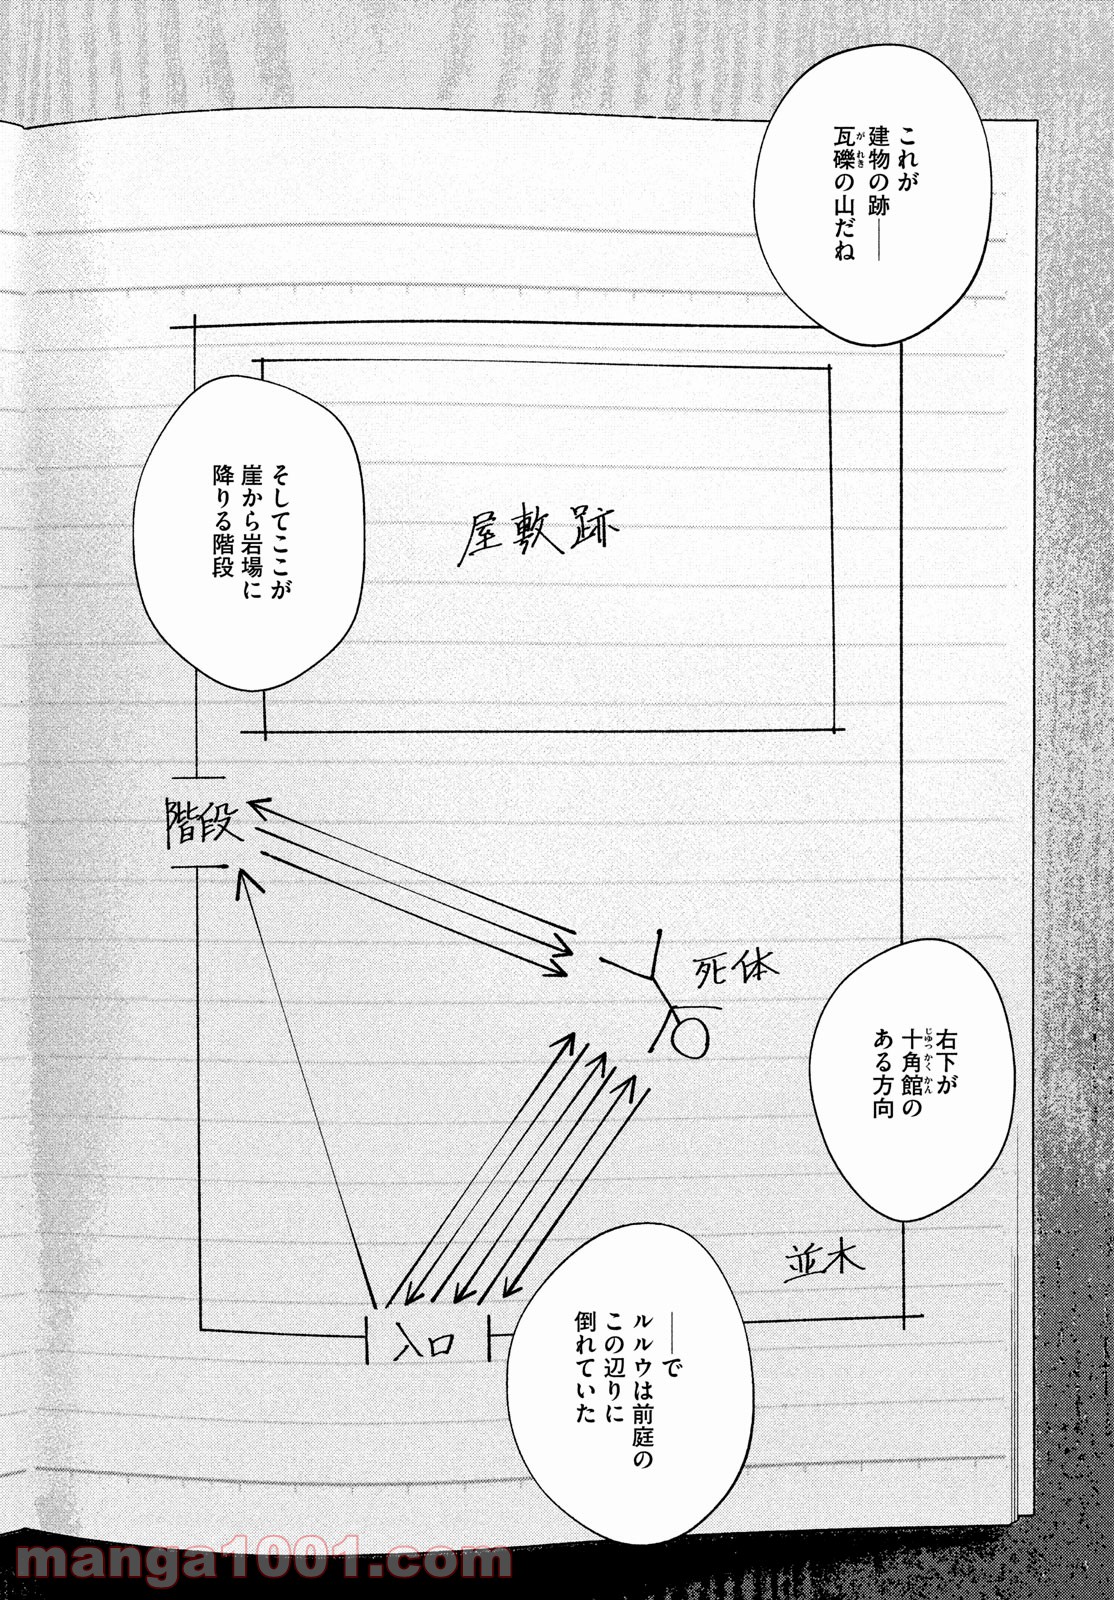 これが
建物の跡──
瓦礫の山だね
がれき
そしてここが
崖から岩場に
降りる階段
屋敷跡
階段
死体
右下が
十角館の
じゅっかくかん
ある方向
並木
入口
──で
ルルウは前庭の
この辺りに
倒れていた
manga1001.com